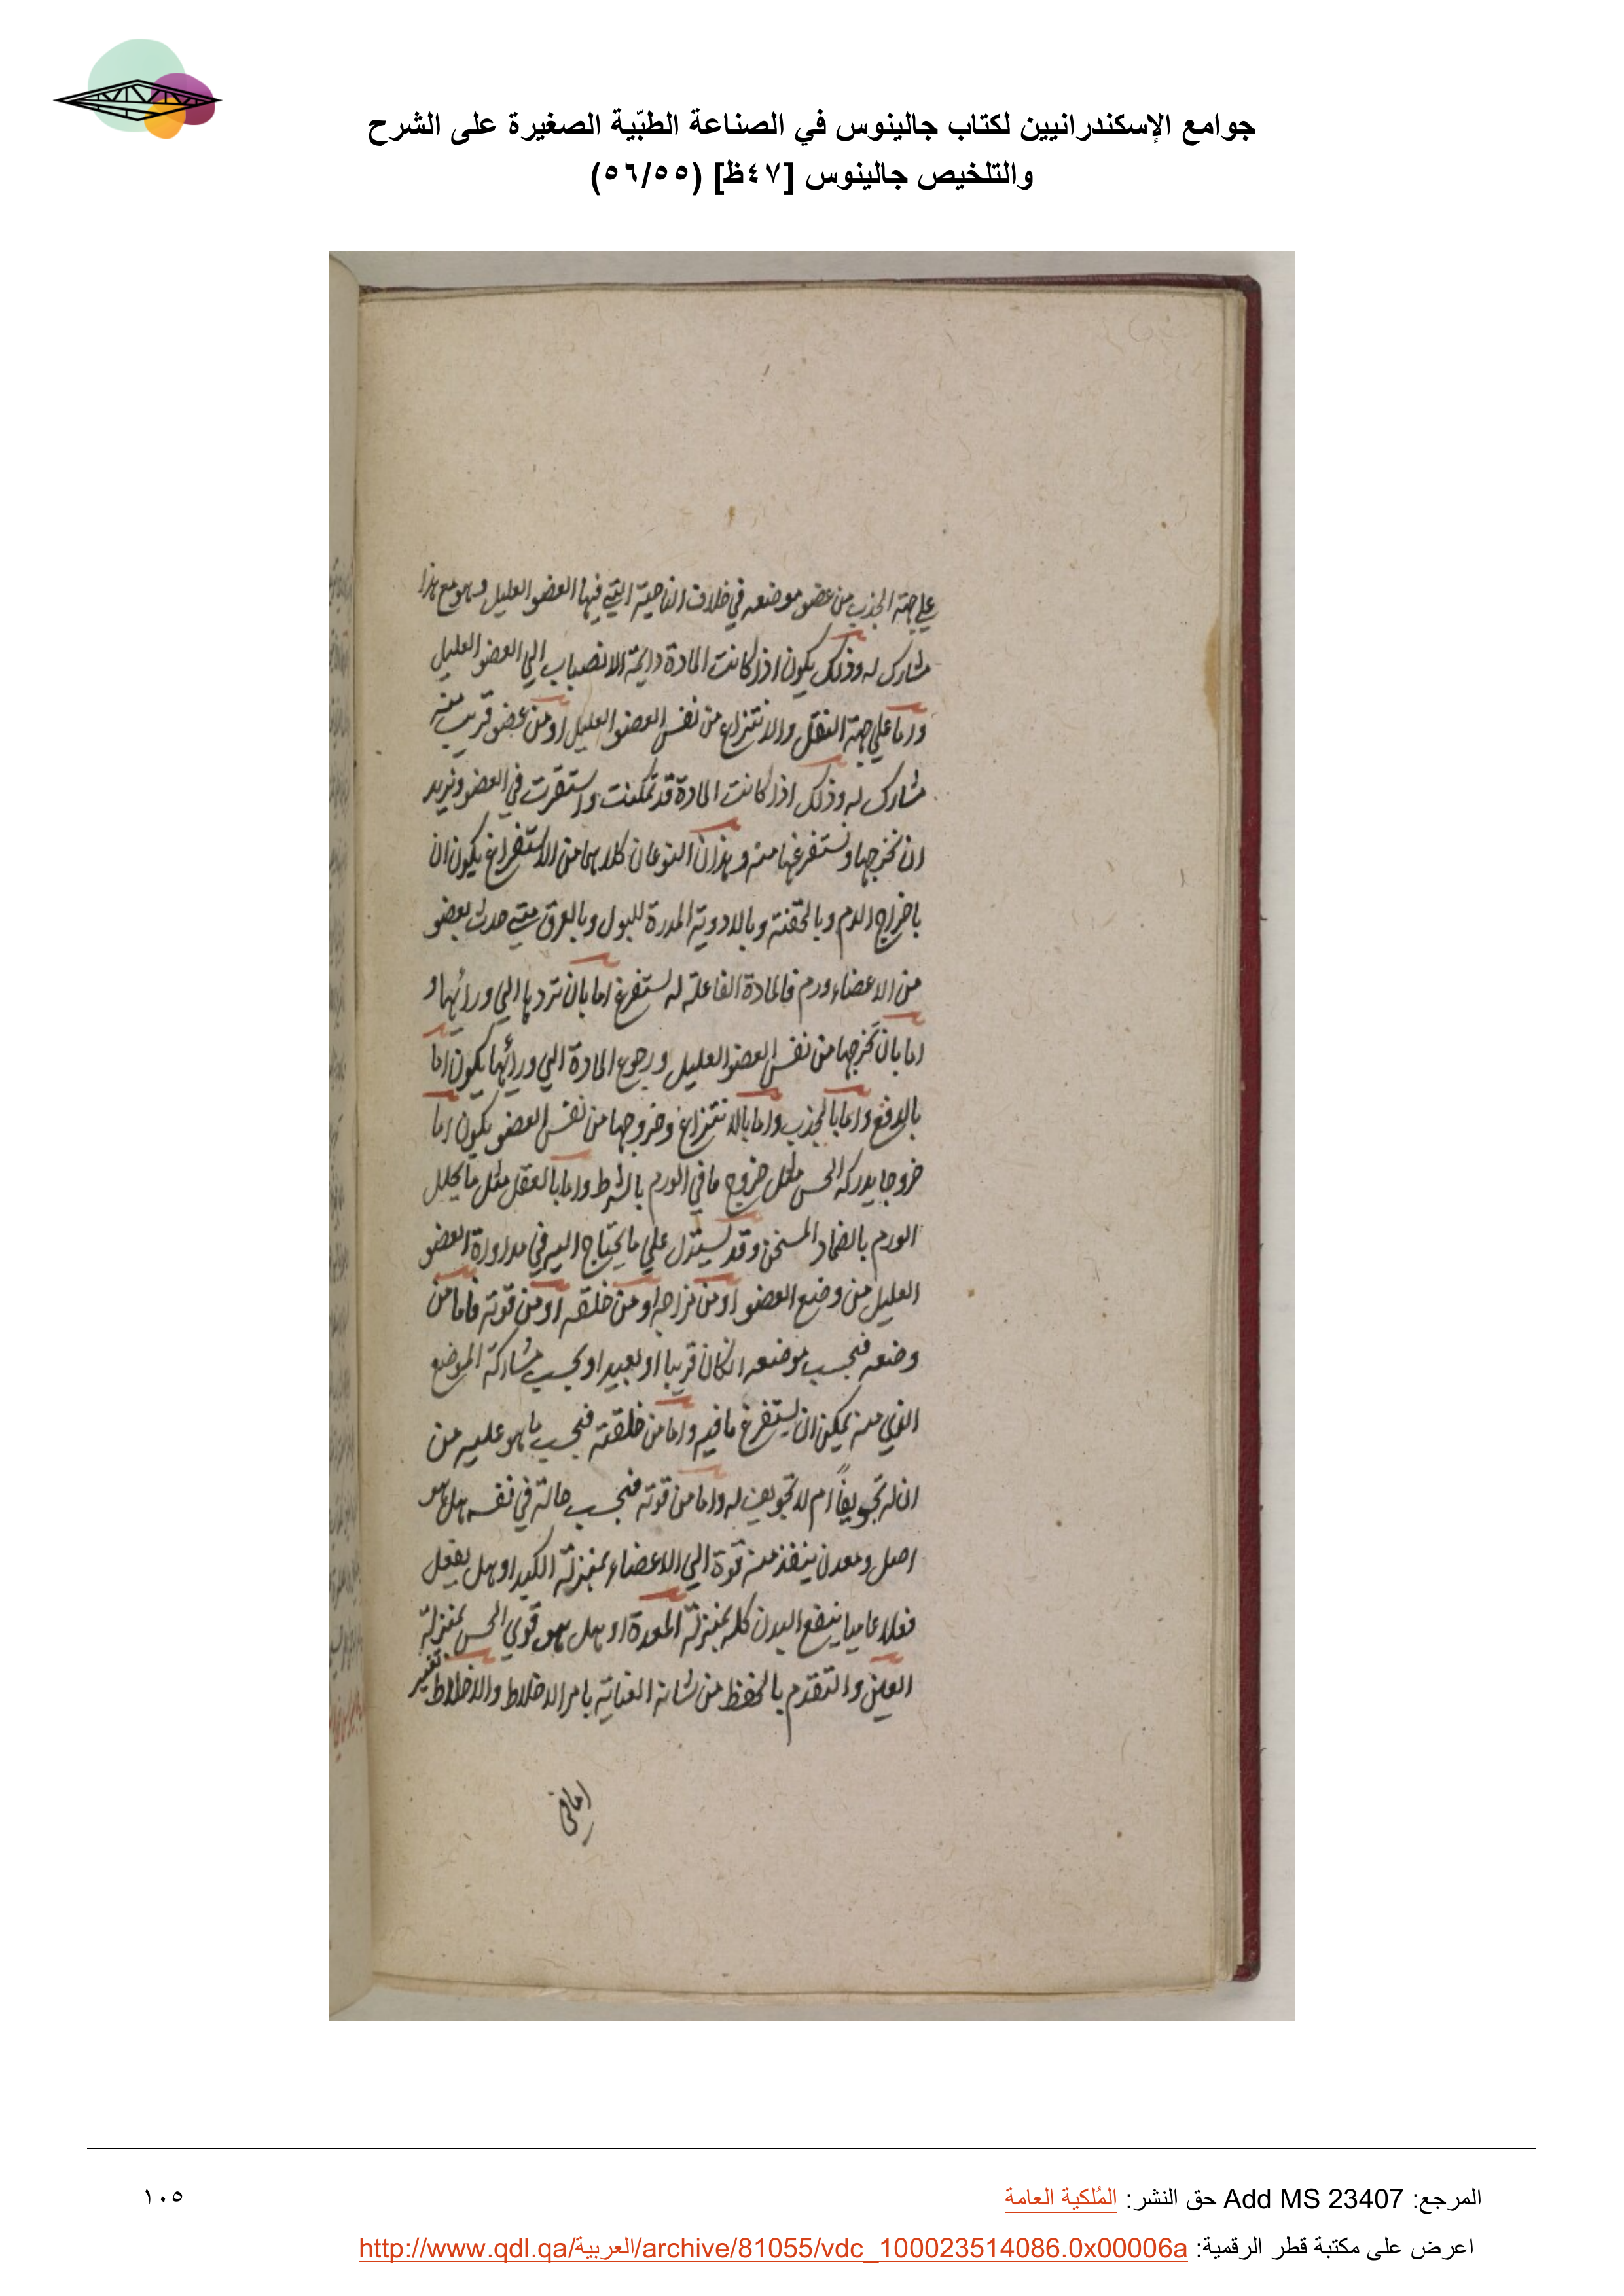 جوامع الإسكندرانيين لكتاب جالينوس في الصناعة الطبّية الصغيرة على الشرح
والتلخيص جالينوس [٤٧ظ] (٥٦/٥٥)
علي جهة الجذب من عضو موضعه في خلاف الناحية التي فيها العضو العليل وهو مع هذا
مشارك له وذلك يكون اذا كانت المادة دايمة الانصباب الي العضو العليل
واما علي جهة النقل والانتزاع من نفس العضو العليل او من عضو قريب منه
مشارك له وذلك اذا كانت المادة قد تمكنت واستقرت في العضو ونريد
ان نخرجها ونستفرغها منه وهذان النوعان كلاهما من الاستفراغ يكون ان
باخراج الدم وبالحقنة وبالادوية المدرة للبول وبالعرق متي حدث بعضو
من الاعضاء ورم فالمادة الفاعلة له تستفرغ اما بان تردها الي ورائها و
اما بان تخرجها من نفس العضو العليل ورجوع المادة الي ورائها يكون اما
بالدفع واما بالجذب واما بالانتزاع وخروجها من نفس العضو يكون اما
خروجا يدركه الحس مثل خروج ما في الورم بالشرط واما بالعقل مثل ما يحلل
الورم بالضماد المسخن وقد يستدل علي ما يحتاج اليه في مداواة العضو
العليل من وضع العضو او من مزاجه او من خلقه او من قوته فاما من
وضعه فبحسب موضعه ان كان قريبا او بعيدا او بحسب مشاركة الموضع
الذي منه يمكن ان يستفرغ ما فيه واما من خلقته فبحسب ما هو عليه من
ان له تجويفاً ام لا تجويف له واما من قوته فبحسب حالته في نفسه هل هو
اصل ومعدن ينفذ منه قوة الي الاعضاء بمنزلة الكبد او هل يفعل
فعلا عاميا ينفع البدن كله بمنزلة المعدة او هل هو قوي الحس بمنزلة
العين والتقدم بالحفظ من شانه العناية بامر الاخلاط والاخلاط تغير
المرجع: Add MS 23407 حق النشر: المُلكية العامة
١٠٥
اعرض على مكتبة قطر الرقمية: http://www.qdl.qa/العربية/archive/81055/vdc_100023514086.0x00006a